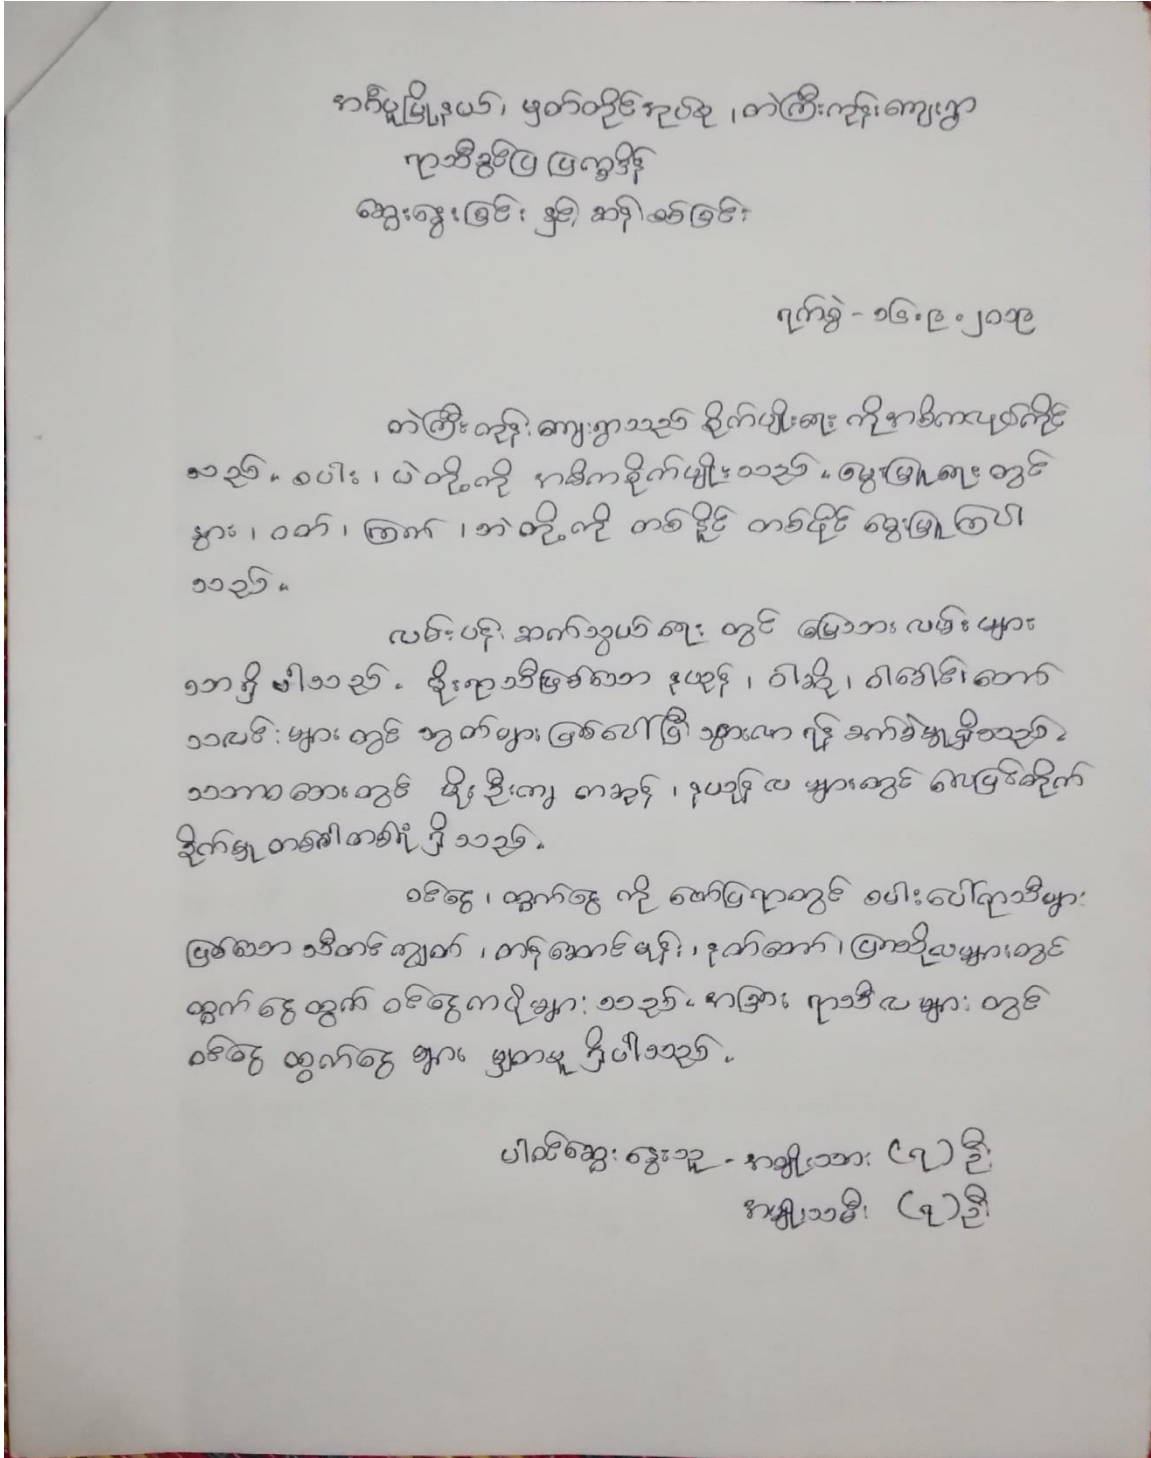 အင်္ဂပူမြို့နယ်၊ မှတ်တိုင်အုပ်စု ၊ တဲကြီးကုန်းကျေးရွာ
ရာသီခွင်ပြ ပြက္ခဒိန်
ဆွေးနွေးခြင်း နှင့် ဆန်းစစ်ခြင်း
ရက်စွဲ - ၁၆.၉.၂၀၁၉
တဲကြီးကုန်းကျေးရွာသည် စိုက်ပျိုးရေး ကို အဓိကလုပ်ကိုင်
သည်။ စပါး ၊ ပဲ တို့ကို အဓိကစိုက်ပျိုးသည်။ မွေးမြူရေး တွင်
နွား ၊ ဝက် ၊ ကြက် ၊ ဘဲ တို့ကို တစ်နိုင် တစ်ပိုင် မွေးမြူကြပါ
သည်။
လမ်းပန်းဆက်သွယ်ရေး တွင် မြေသားလမ်းများ
သာရှိပါသည်။ မိုးရာသီဖြစ်သော နယုန် ၊ ဝါဆို ၊ ဝါခေါင်၊ တော်
သလင်းများတွင် ဗွက်များဖြစ်ပေါ်ပြီး သွားလာရန် ခက်ခဲမှုရှိသည်။
သဘာဝဘေးတွင် မိုးဦးကျ ကဆုန် ၊ နယုန်လ များတွင် လေပြင်းတိုက်
ခိုက်မှု တစ်ခါတစ်ရံ ရှိသည်။
ဝင်ငွေ ၊ ထွက်ငွေ ကို ဖော်ပြရာတွင် စပါးပေါ်ရာသီများ
ဖြစ်သော သီတင်းကျွတ် ၊ တန်ဆောင်မုန်း ၊ နတ်တော် ၊ ပြာသိုလများတွင်
ထွက်ငွေထွက် ဝင်ငွေကပိုများသည်။ အခြား ရာသီလများ တွင်
ဝင်ငွေ ထွက်ငွေ များ မျှတမှု ရှိပါသည်။
ပါဝင်ဆွေးနွေးသူ - အမျိုးသား (၇) ဦး
အမျိုးသမီး (၇) ဦး